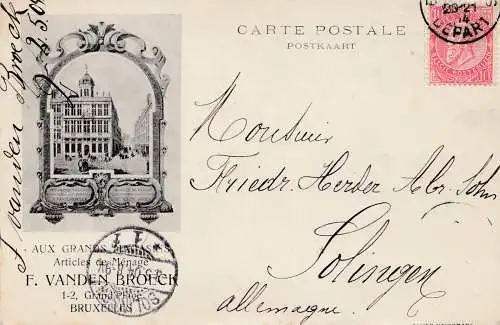 CARTE POSTALE
POSTKAART
DEPART
F. vanden Broeck
Monsieur
Friedr. Herder Abr. Sohn
Solingen
Allemagne.
AUX GRANDS MAGASINS
Articles de Ménage
F. VANDEN BROECK
1-2, Grand'Place
BRUXELLES